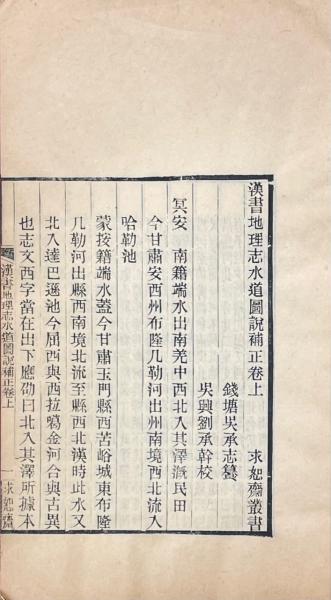 漢書地理志水道圖說補正卷上 求恕齋叢書
錢塘吳承志籑
吳興劉承幹校
冥安 南籍端水出南羌中西北入其澤溉民田
今甘肅安西州布隆几勒河出州南境西北流入
哈勒池
蒙按籍端水蓋今甘肅玉門縣西苦峪城東布隆
几勒河出縣西南境北流至縣西北漢時此水又
北入達巴遜池今屆西與西拉噶金河合與古異
也志文西字當在出下應劭曰北入其澤所據本
漢書地理志水道圖說補正卷上 一 求恕齋